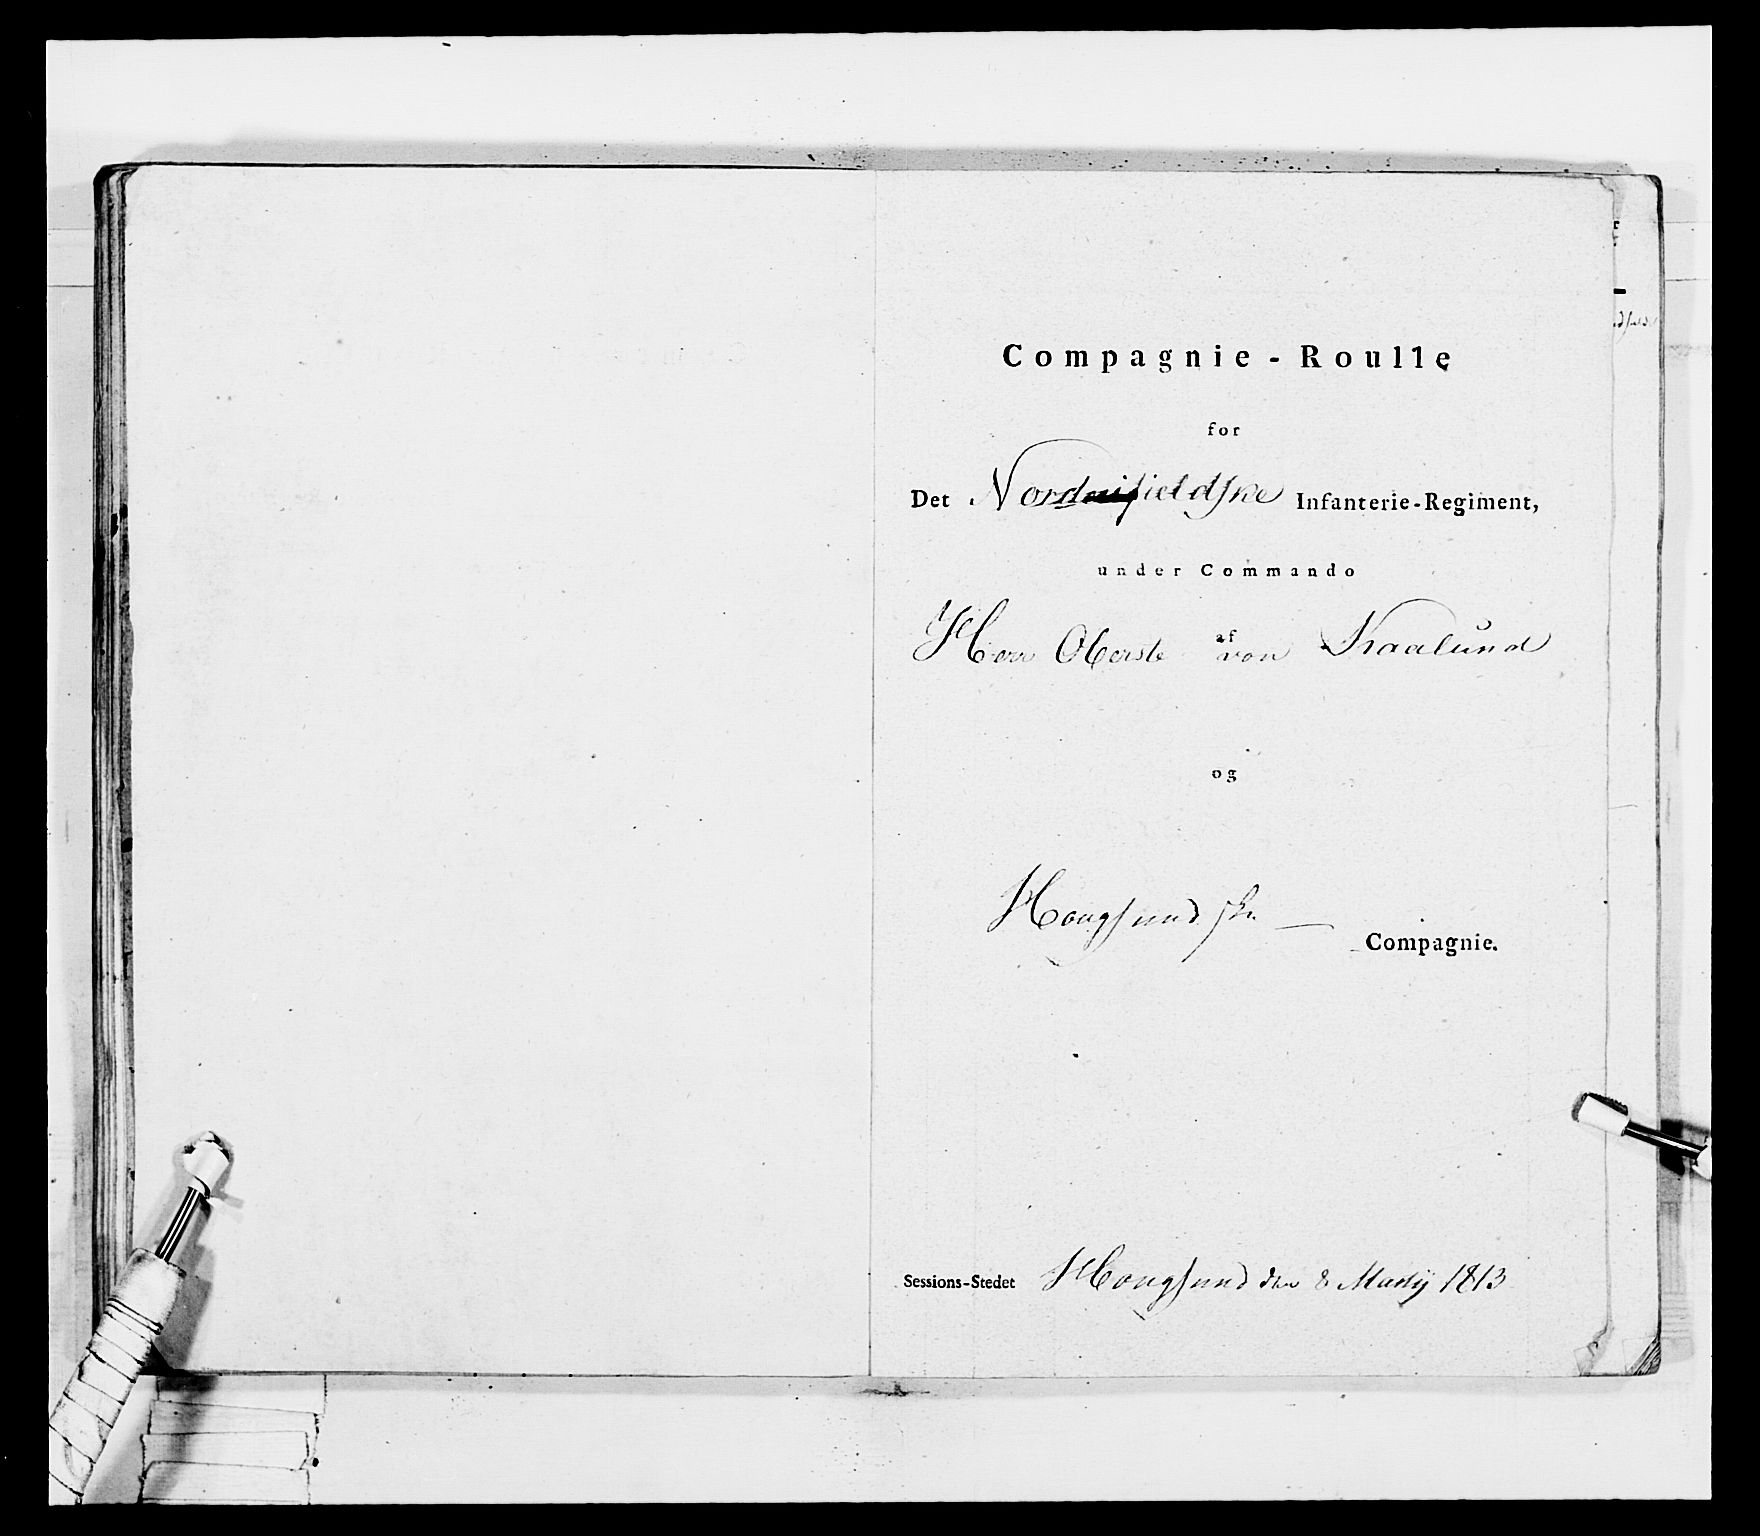 Compagnie-Roulle
for
Det Nordenfieldske Infanterie-Regiment,
under Commando
af
Herr Oberste von Kaalund
og
Hougsundske Compagnie.
Sessions-Stedet Hougsund den 8 Martÿ 1813